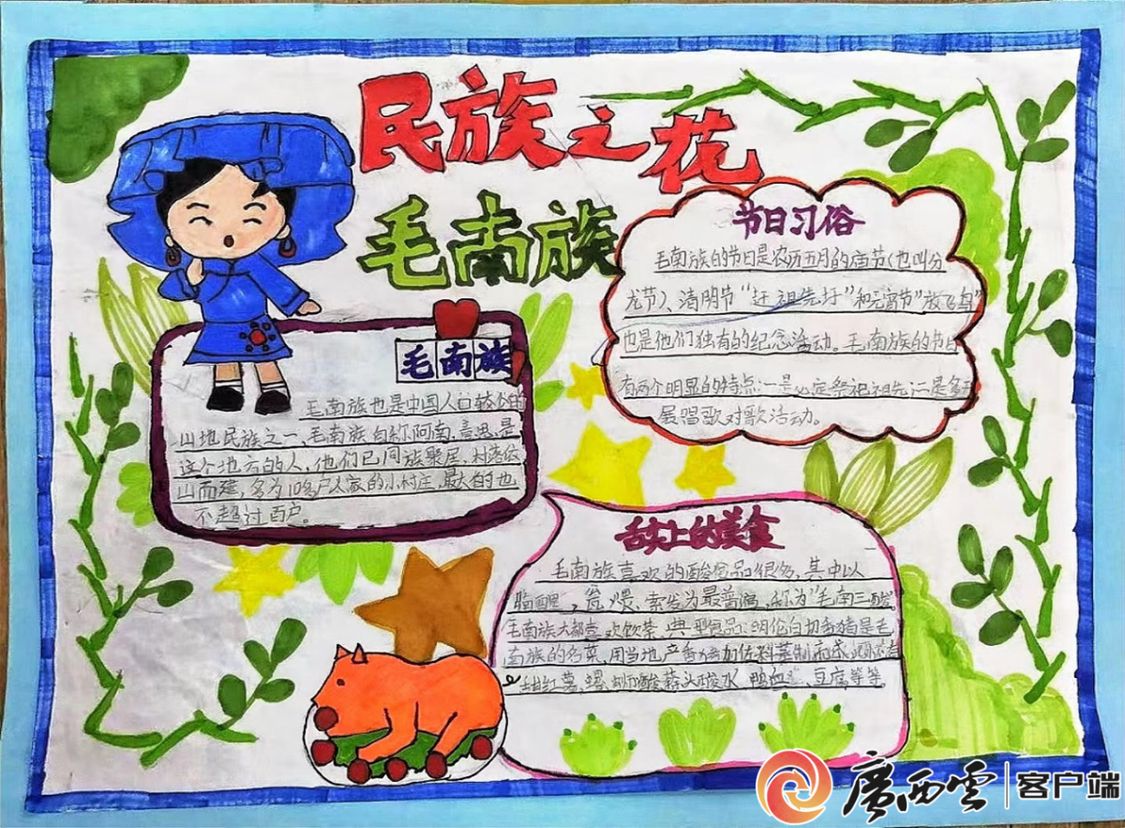 民族之花
毛南族
节日习俗
毛南族的节日是农历五月的庙节(也叫分
龙节)、清明节“赶祖先圩”和元宵节“放飞鸟”
也是他们独有的纪念活动。毛南族的节日
有两个明显的特点:一是必定祭祀祖先;二是多
展唱歌对歌活动。
毛南族
毛南族也是中国人口较少的
山地民族之一、毛南族自称阿南,意思是
这个地方的人,他们已同族聚居、村落依
山而建,多为10多户人家的小村庄,最大的也
不超过百户。
舌尖上的美食
毛南族喜欢的酸食品很多,其中以
索发为最普遍,称为“毛南三酸
毛南族大都喜欢饮茶,典型食品:明伦白切香猪是毛
南族的名菜、用当地产香猪加佐料蒸制而成
甜红薯、螺蛳酸、蒜头酸水、豆腐等等
廣西雲 客户端